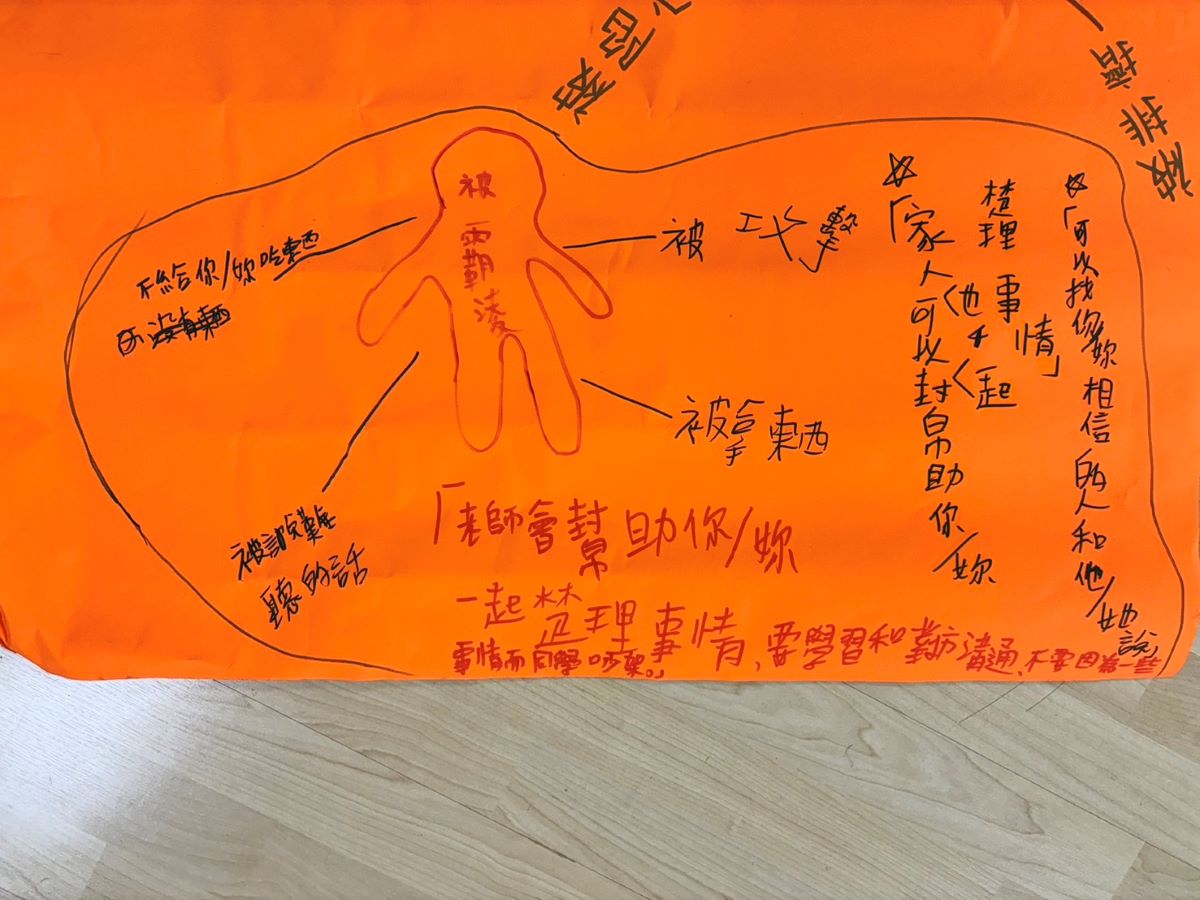 被排擠
被
霸
凌
不給你/妳吃東西
被攻擊
被拿東西
被說難
聽的話
☆「可以找你妳相信的人和他/她說」
楚理事情」
他才起
☆「家人可以封幫助你/妳
「老師會幫助你/妳
一起楚理事情、要學習和對方溝通、不要因為一些
事情而同學吵架。」